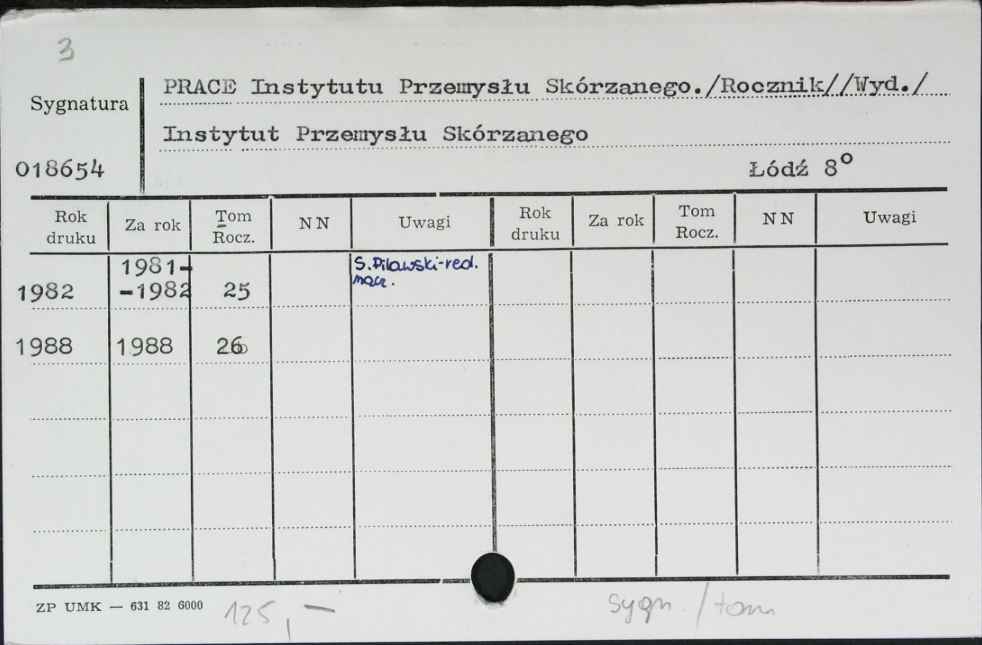 3
Sygnatura
PRACE Instytutu Przemysłu Skórzanego./Rocznik//Wyd./
Instytut Przemysłu Skórzanego
018654
Łódź 8°
Rok druku Za rok Tom Rocz. NN Uwagi Rok druku Za rok Tom Rocz. NN Uwagi
1982 1981-
-1982 25 S.Pilawski-red.
nacz.
1988 1988 26
ZP UMK — 631 82 6000
125,—
sygn./tom